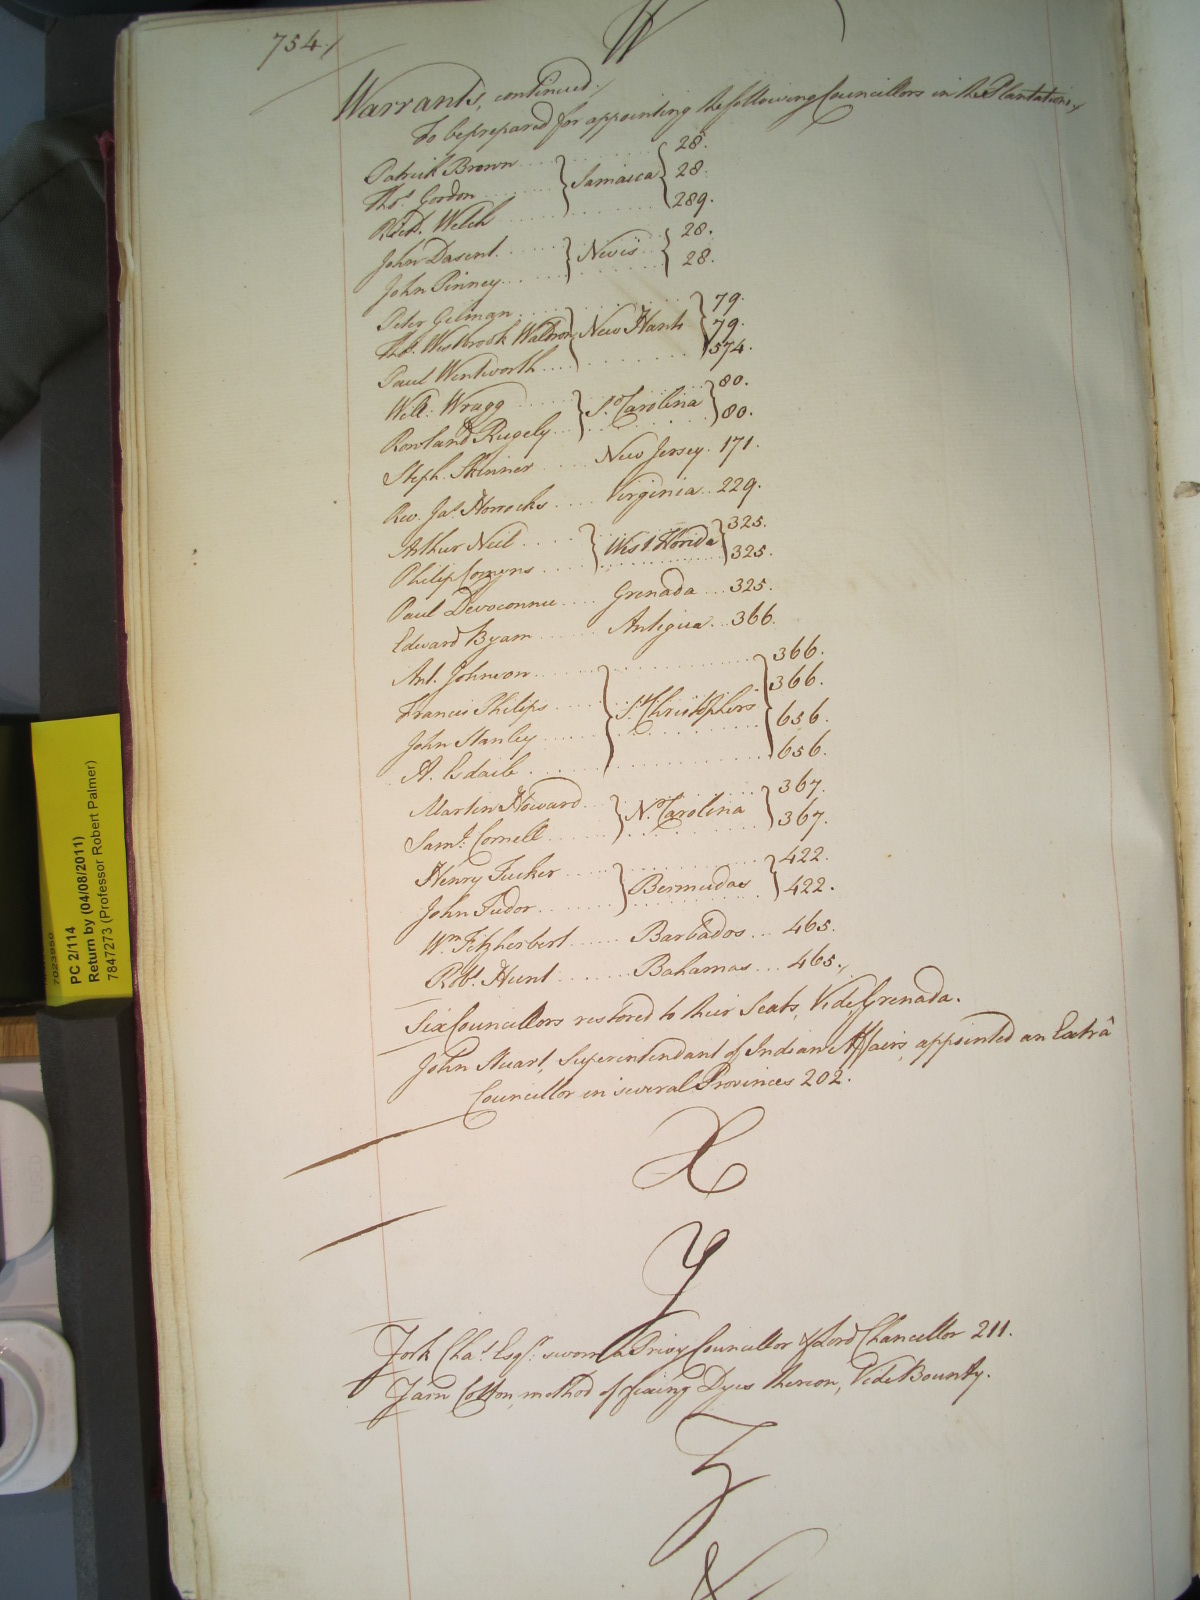 754
W
Warrants, continued.
To be prepared for appointing the following Councillors in the Plantations,
Patrick Brown 28.
Thos. Gordon Jamaica 28.
Richd. Welch 289.
John Dasent Nevis 28.
John Pinney 28.
Peter Gilman 79.
Thos. Westbrook Waldron New Hamps 79.
Paul Wentworth 574.
Willm. Wragg So. Carolina 80.
Rowland Rugely 80.
Steph. Skinner New Jersey 171.
Rev. Jas. Horrocks Virginia 229.
Arthur Neil West Florida 325.
Philip Comyns 325.
Paul Devoconnu Grenada 325.
Edward Byam Antigua 366.
Ant. Johnson 366.
Francis Philips St. Christophers 366.
John Stanley 656.
A. Esdaile 656.
Martin Howard No. Carolina 367.
Saml. Cornell 367.
Henry Tucker Bermudas 422.
John Tudor 422.
Wm. Fitzherbert Barbados 465.
Robt. Hunt Bahamas 465.
Six Councillors restored to their Seats, Vide, Grenada.
John Stuart, Superintendant of Indian Affairs, appointed an Extra
Councillor in several Provinces 202.
X
Y
York Chas. Esqr. sworn a Privy Councillor & Lord Chancellor 211.
Yarn Cotton, method of fixing Dyes thereon, Vide Bounty.
Z
&
7023950
PC 2/114
Return by (04/08/2011)
7847273 (Professor Robert Palmer)